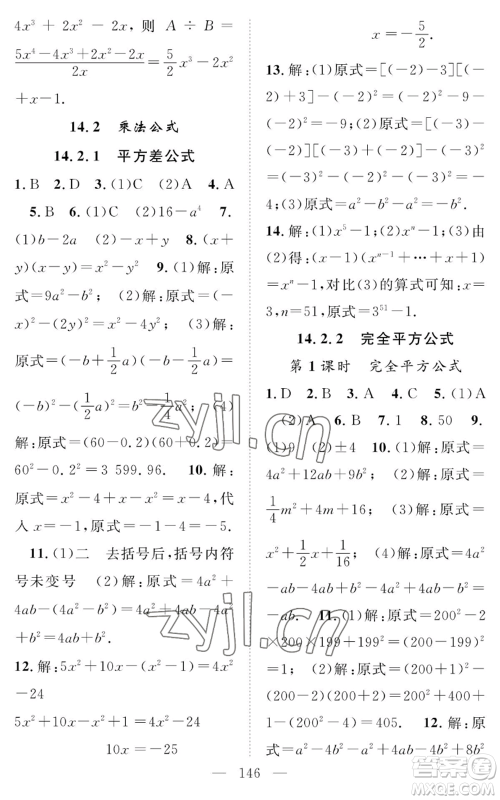 4x³＋2x²－2x，则 A÷B＝
(5x⁴－4x³＋2x²－2x)/2x＝5/2x³－2x²
＋x－1.
14.2 乘法公式
14.2.1 平方差公式
1.B 2.D 3.(1)C (2)A 4.A
5.B 6.(1)C (2)16－a⁴ 7.
(1)b－2a (2)－x＋y 8.(1)x－y
(2)x＋y 9.(1)解：原式＝x²－y².
(2)解：原式＝9a²－b². (3)解：原式＝(－
x)²－(2y)²＝x²－4y². (4)解：
原式＝(－b＋1/2a)(－b－1/2a)＝
(－b)²－(1/2a)²＝b²－1/4a². (4)
解：原式＝(60－0.2)(60＋0.2)＝
60²－0.2²＝3 599.96. 10.解：
原式＝x²－4＋x－x²＝x－4，代
入 x＝－1，得原式＝－5.
11.(1)二 去括号后，括号内符
号未变号 (2)解：原式＝4a²＋
4ab－(4a²－b²)＝4a²＋4ab－4a²
＋b²＝4ab＋b².
12.解：5x²＋10x－(x²－1)＝4x²
－24
5x²＋10x－x²＋1＝4x²－24
10x＝－25
x＝－5/2.
13.解：(1)原式＝[(－2)－3][(－2)
＋(－3)]＝
(－2)²＝－9； (2)原式＝[(－3)
＋(－2)][(－3)－(－2)]＝(－3)²
－(－2)²
4； (3)原式＝a²－b².
14.解：(1)x⁵－1； (2)xⁿ－1； (3)由
(2)得：(x－1)(xⁿ⁻¹＋…＋x＋1)
＝xⁿ－1，对比(3)的算式可知：x＝
3，n＝51，原式＝3⁵¹－1.
14.2.2 完全平方公式
第1课时 完全平方公式
1.D 2.D 3.A 4.C 5.(1)A
(2)A 6.B 7.1 8.50 9.
(1)9 (2)±4 10.(1)解：原式＝
4a²＋12ab＋9b²； (2)解：原式＝
1/4m²＋4m＋16； (3)解：原式＝
x²＋1/2x＋1/16； (4)解：原式＝4a²－
4ab＋b². 11.(1)解：原式＝200²－2
×200×199＋199²＝(200－199)²＝
1； (2)解：原式＝200²－(200－
2)(200＋2)＝200²－(200²－2²)＝
4
＝40 405. 12.解：
原式＝a²－4ab＋4b²－a²－4ab＋8b²
146
zyjl.cn
zyjl.cn